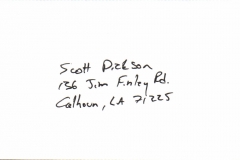 Scott Dickson
136 Jim Finley Rd.
Calhoun, LA 71225